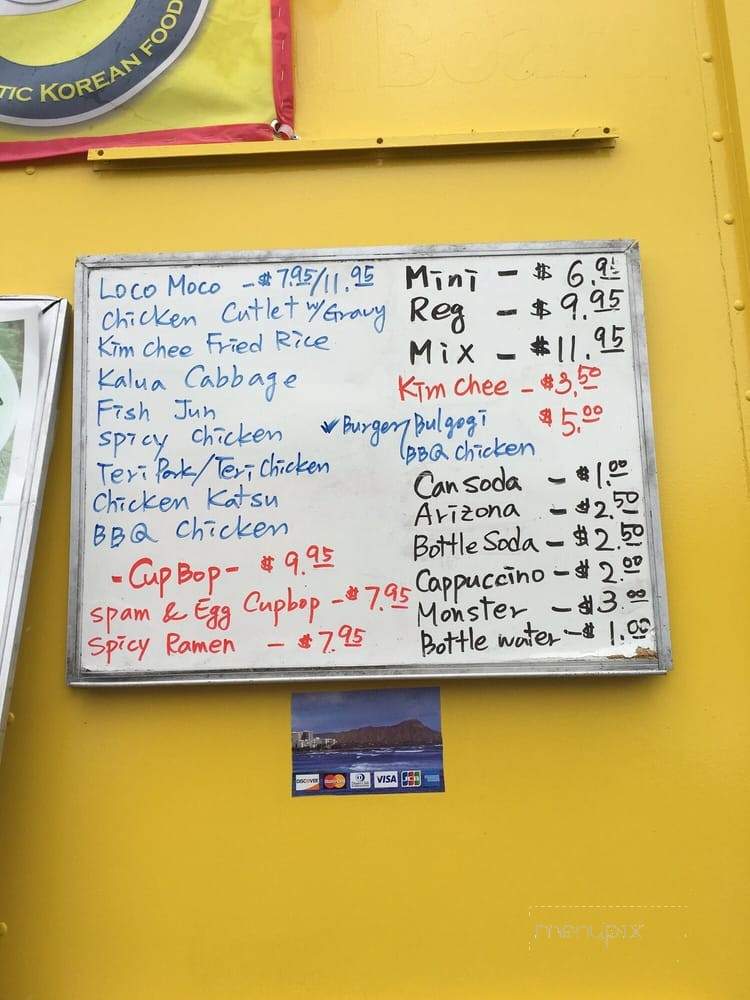 TIC KOREAN FOOD
Loco Moco - $7.95/11.95
Chicken Cutlet w/Gravy
Kim chee Fried Rice
Kalua Cabbage
Fish Jun
Spicy Chicken
Teri Pork/Teri Chicken
Chicken Katsu
BBQ Chicken
- Cup Bop - $9.95
Spam & Egg Cupbop - $7.95
Spicy Ramen - $7.95
Mini - $6.95
Reg - $9.95
Mix - $11.95
Kim chee - $3.50
Burger/Bulgogi $5.00
BBQ chicken
Can soda - $1.00
Arizona - $2.50
Bottle Soda - $2.50
Cappuccino - $2.00
Monster - $3.00
Bottle water - $1.00
DISCOVER MasterCard VISA JCB
menupix